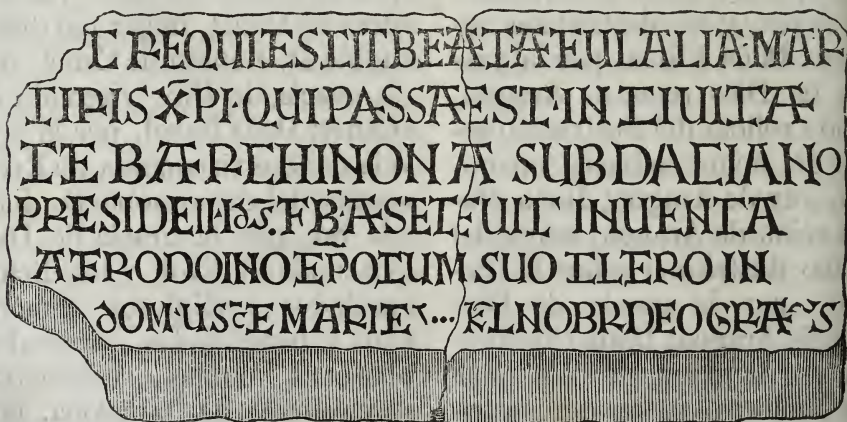 C REQUIESCIT BEATA EULALIA·MAR
TIRIS X̄PI·QUI PASSA EST·IN CIUITA
TE BARCHINONA SUB DACIANO
PRESIDE II· FB̄·A SET FUIT INUENTA
A FRODOINO EP̄O CUM SUO CLERO IN
DOM·U SC̄E MARIE ... KL NOBR DEO GRA~S